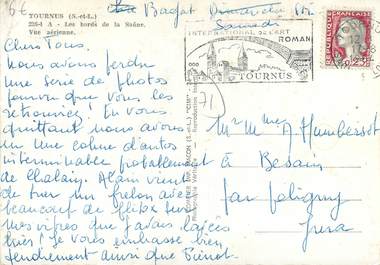 6€
TOURNUS (S.-et-L.)
226-1 A - Les bords de la Saône.
Vue aérienne.
Bagat Dimanche soir
Samedi
Chers Tous.
Nous avons perdu
une série de photos
pourvu que vous les
retrouviez! En vous
quittant nous avons
vu une colonne d'autos
interminable probablement
de Chalain. Alain vient
de tuer un frelon avec
beaucoup de flitox sur
mes vitres que j'avais lavées
hier! Je vous embrasse bien
tendrement ainsi que Pierrot.
INTERNATIONAL DE L'ART
ROMAN
TOURNUS
REPUBLIQUE FRANÇAISE
0,25
71
COMBIER IMP. MACON (S.-&-L.) "CIM"
Mr Mme A Humbersot
à Besain
par Poligny
Jura